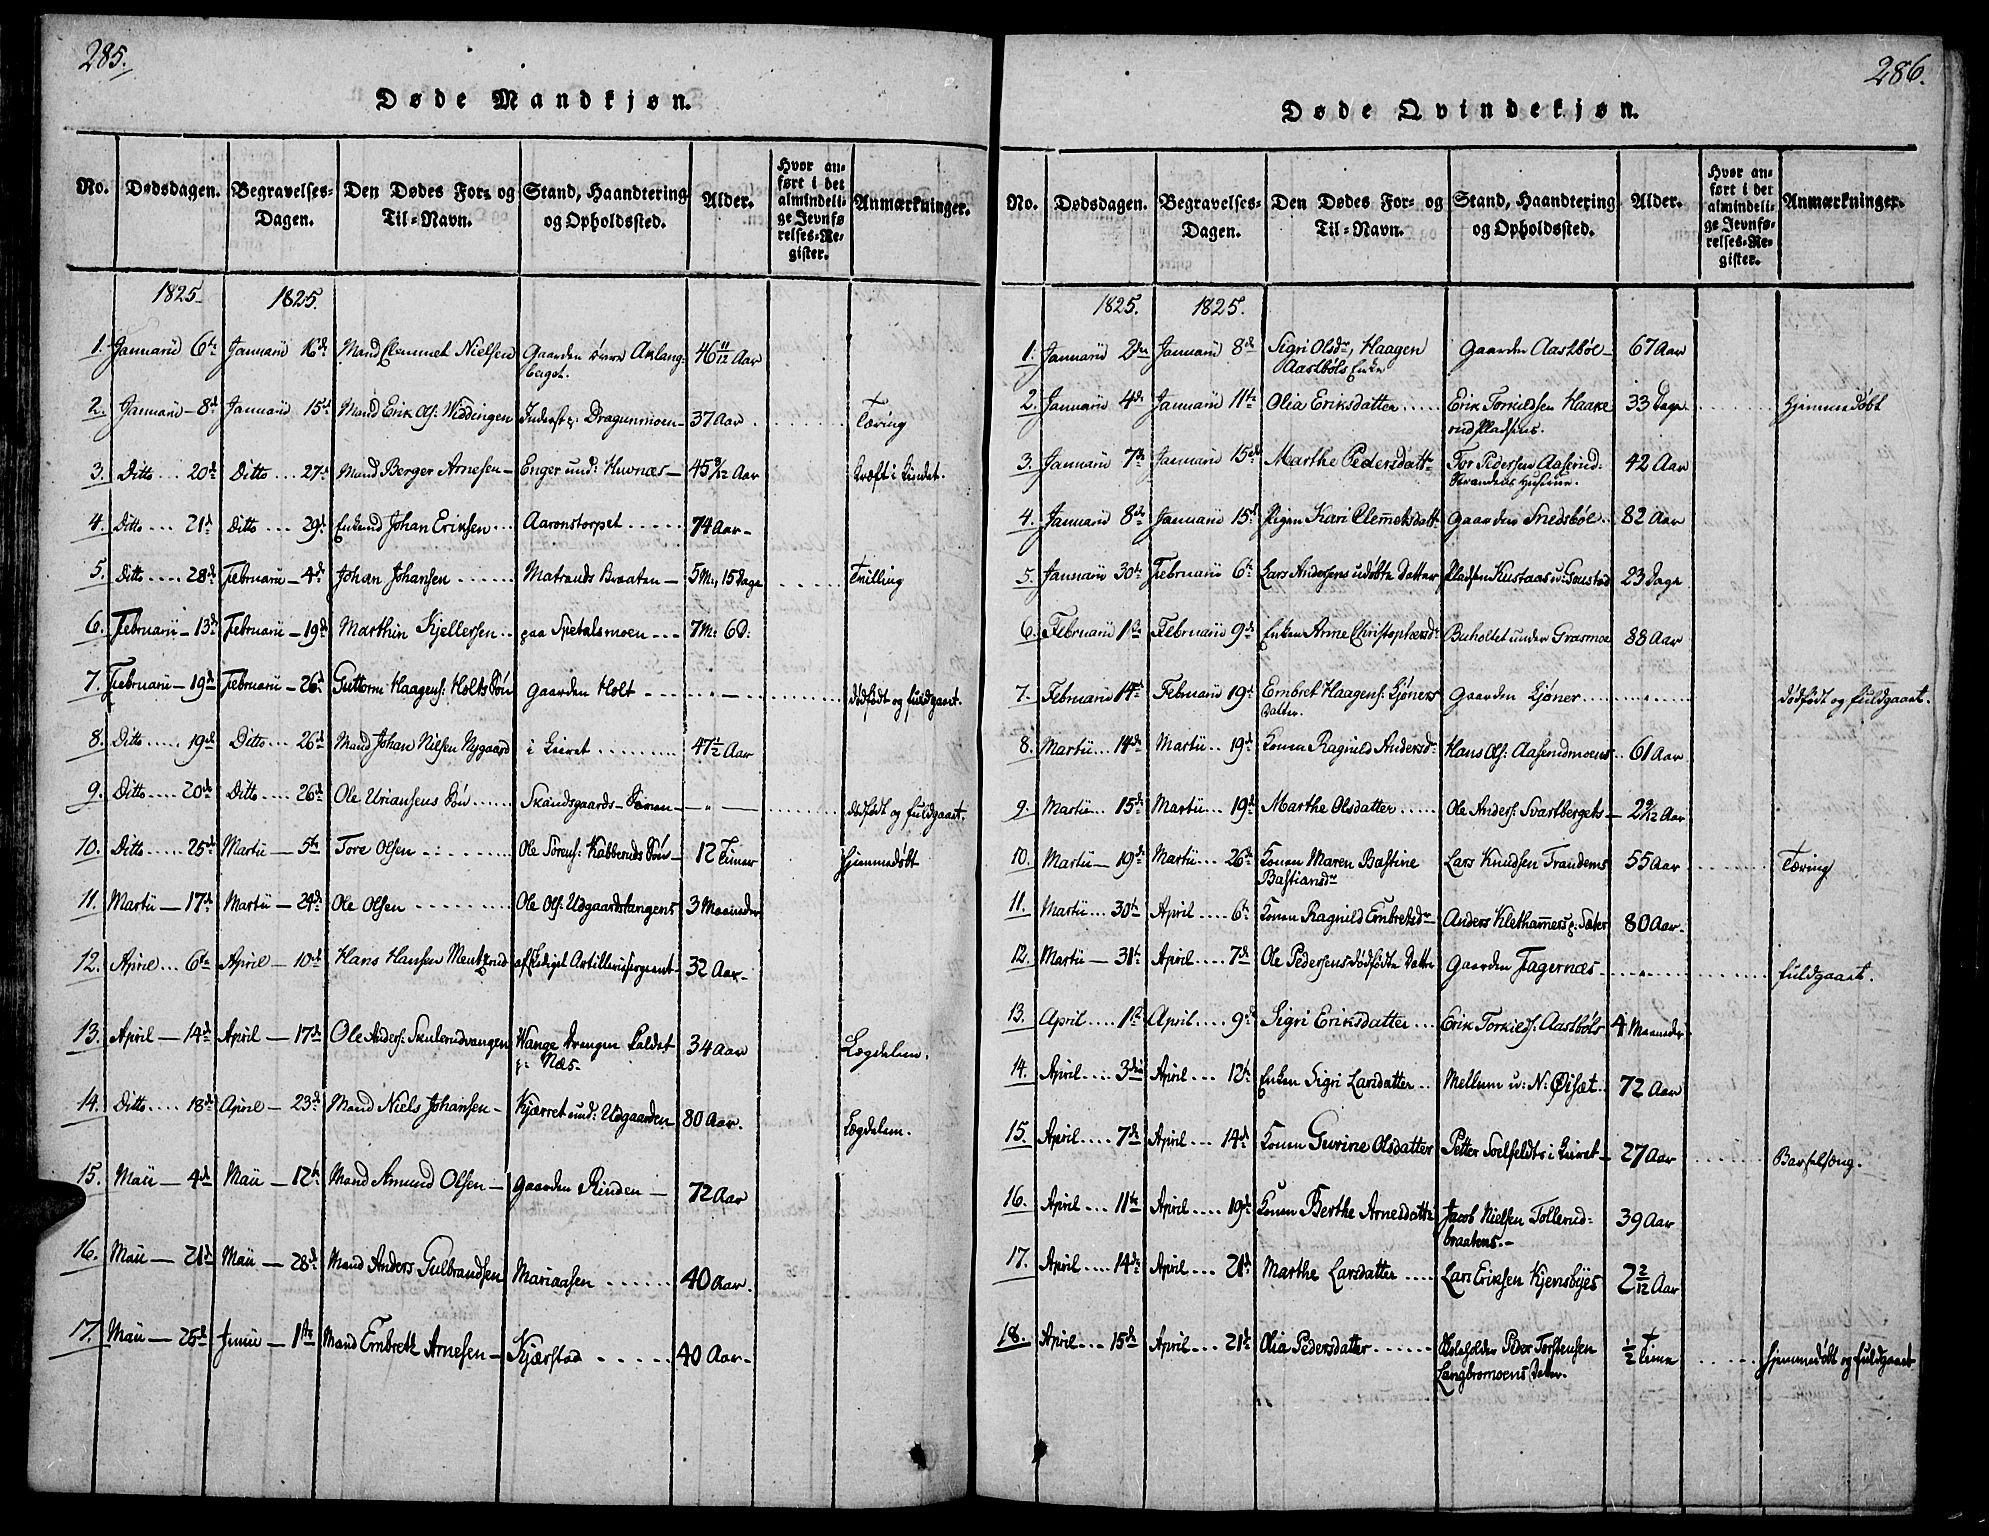 285.
Døde Mandkjøn.
No. Dødsdagen. Begravelses-Dagen. Den Dødes For- og Til-Navn. Stand, Haandtering og Opholdssted. Alder. Hvor anført i det almindelige Jevnførelses-Register. Anmærkninger.
1825. 1825.
1. Januarii 6te Januarii 16de Mand Clemmet Nielsen Gaarden övre Aklangberget. 46 11/12 Aar
2. Januarii – 8de Januarii 15de Mand Erik Ols: Widdingen Inderst p: Dragunmoen – 37 Aar Tæring
3. Ditto ... 20de Ditto ... 27de Mand Berger Arnesen – Enger und: Huvnæs – 45 9/12 Aar Kræft i
4. Ditto ... 21de Ditto ... 29de Enkemd Johan Eriksen ... Aaronstorpet ..... 74 Aar –
5. Ditto .... 28de Februarii – 4de Johan Johansen ...... Matrands Braaten – 5 M:, 15 Dage Tvilling
6. Februarii – 13de Februarii – 19de Marthin Kjellersen .. paa Spetalsmoen ... 7 M: 6 D:
7. Februarii – 19de Februarii – 26de Guttorm Haagens: Holts Sön Gaarden Holt ... – " – dödfödt og fuldgaaet.
8. Ditto ..... 19de Ditto ... 26de Mand Johan Nilsen Nygaard i Leiret ........ 47 1/2 Aar
9. Ditto .... 20de Ditto .... 26de Ole Uriansens Sön ...... Skandsgaards – – " – dödfödt og fuldgaaet.
10. Ditto ..... 25de Martii – 5te Tore Olsen ......... Ole Sörens: Kabberuds Sön – 12 Timer hjemmedöbt
11. Martii – 17de Martii – 24de Ole Olsen ........ Ole Ols: Udgaardstangens 3 Maaneder
12. April ... 6te April – 10de Hans Hansen Mentzrud afskediget Artillerisergeant – 32 Aar –
13. April – 14de April – 17de Ole Anders: Skulerudvangen Wange Drengen Kaldet p: Næs – 34 Aar Lægdslem.
14. Ditto .... 18de April – 23de Mand Niels Johansen – Kjærret und: Udgaarden 80 Aar. Lægdslem.
15. Maii – 4de Maii – 12te Mand Amund Olsen – gaarden Rinden – 72 Aar
16. Maii – 21de Maii – 28de Mand Anders Gulbrandsen Mariaasen ...... 40 Aar.
17. Maii – 25de Junii – 1ste Mand Embreth Arnesen – Kjærstad ..... 40 Aar –
286.
Døde Qvindekjøn.
No. Dødsdagen. Begravelses-Dagen. Den Dødes For- og Til-Navn. Stand, Haandtering og Opholdssted. Alder. Hvor anført i det almindelige Jevnførelses-Register. Anmærkninger.
1825. 1825.
1. Januarii 2den Januarii 8de Sigri Olsdr, Haagen Aastböls Enke Gaarden Aastböl – 67 Aar
2. Januarii 4de Januarii 11te Olia Eriksdatter ..... Erik Torkildsen Haakerud Pladsens. 33 Dage hjemmedöbt
3. Januarii 7de Januarii 15de Marthe Pedersdatt: Tor Pedersen Aaserud: Strandens Hustrue. 42 Aar
4. Januarii 8de Januarii 15de Pigen Kari Clemetsdatt Gaarden Snedsböl .. 82 Aar
5. Januarii 30te Februarii 6te Lars Andersens udöbte Datter Pladsen Kustaas u: Goustad 23 Dage
6. Februarii 1ste Februarii 9de Enken Anne Christophersdr Buholtet under Grasmoe 88 Aar
7. Februarii 14de Februarii 19de Embret Haagens: Gjöners Datter. Gaarden Gjöner ... " dödfödt og fuldgaaet.
8. Martii ... 14de Martii ... 19de Konen Ragnild Andersdr Hans Ols: Aaserudmoens .. 61 Aar
9. Martii ... 15de Martii ... 19de Marthe Olsdatter ..... Ole Anders: Svartbergets – 2 9/12 Aar
10. Martii – 19de Martii ... 26de Konen Maren Bastine Bastiansdr Lars Knudsen Trandems 55 Aar Tæring
11. Martii ... 30te April .... 6te Konen Ragnild Embretsdr – Anders Klethamers p: Sæter 80 Aar –
12. Martii – 31te April .... 7de Ole Pedersens dödfödte Datter Gaarden Fagernæs – " fuldgaaet.
13. April .... 1ste April .... 9de Sigri Eriksdatter ... Erik Torkilds: Aastböls 4 Maaneder
14. April .... 3die April .... 12te Enken Sigri Larsdatter .. Mellum u: N: Öisæt .. 72 Aar
15. April .... 7de April .... 14de Konen Gurine Olsdatter Petter Soelfeldts i Leiret – 27 Aar Barselseng.
16. April .... 11te April .... 19de Konen Berthe Arnesdatt: Jacob Nielsen Tollerudbraatens. – 39 Aar
17. April .... 14de April .... 21de Marthe Larsdatter .... Lars Eriksen Kjensbyes 2 2/12 Aar
18. April .... 15de April .... 21de Olia Pedersdatter ...... Peder Torstensen Langbromoens Datter. 1/2 Time hjemmedöbt og fuldgaaet